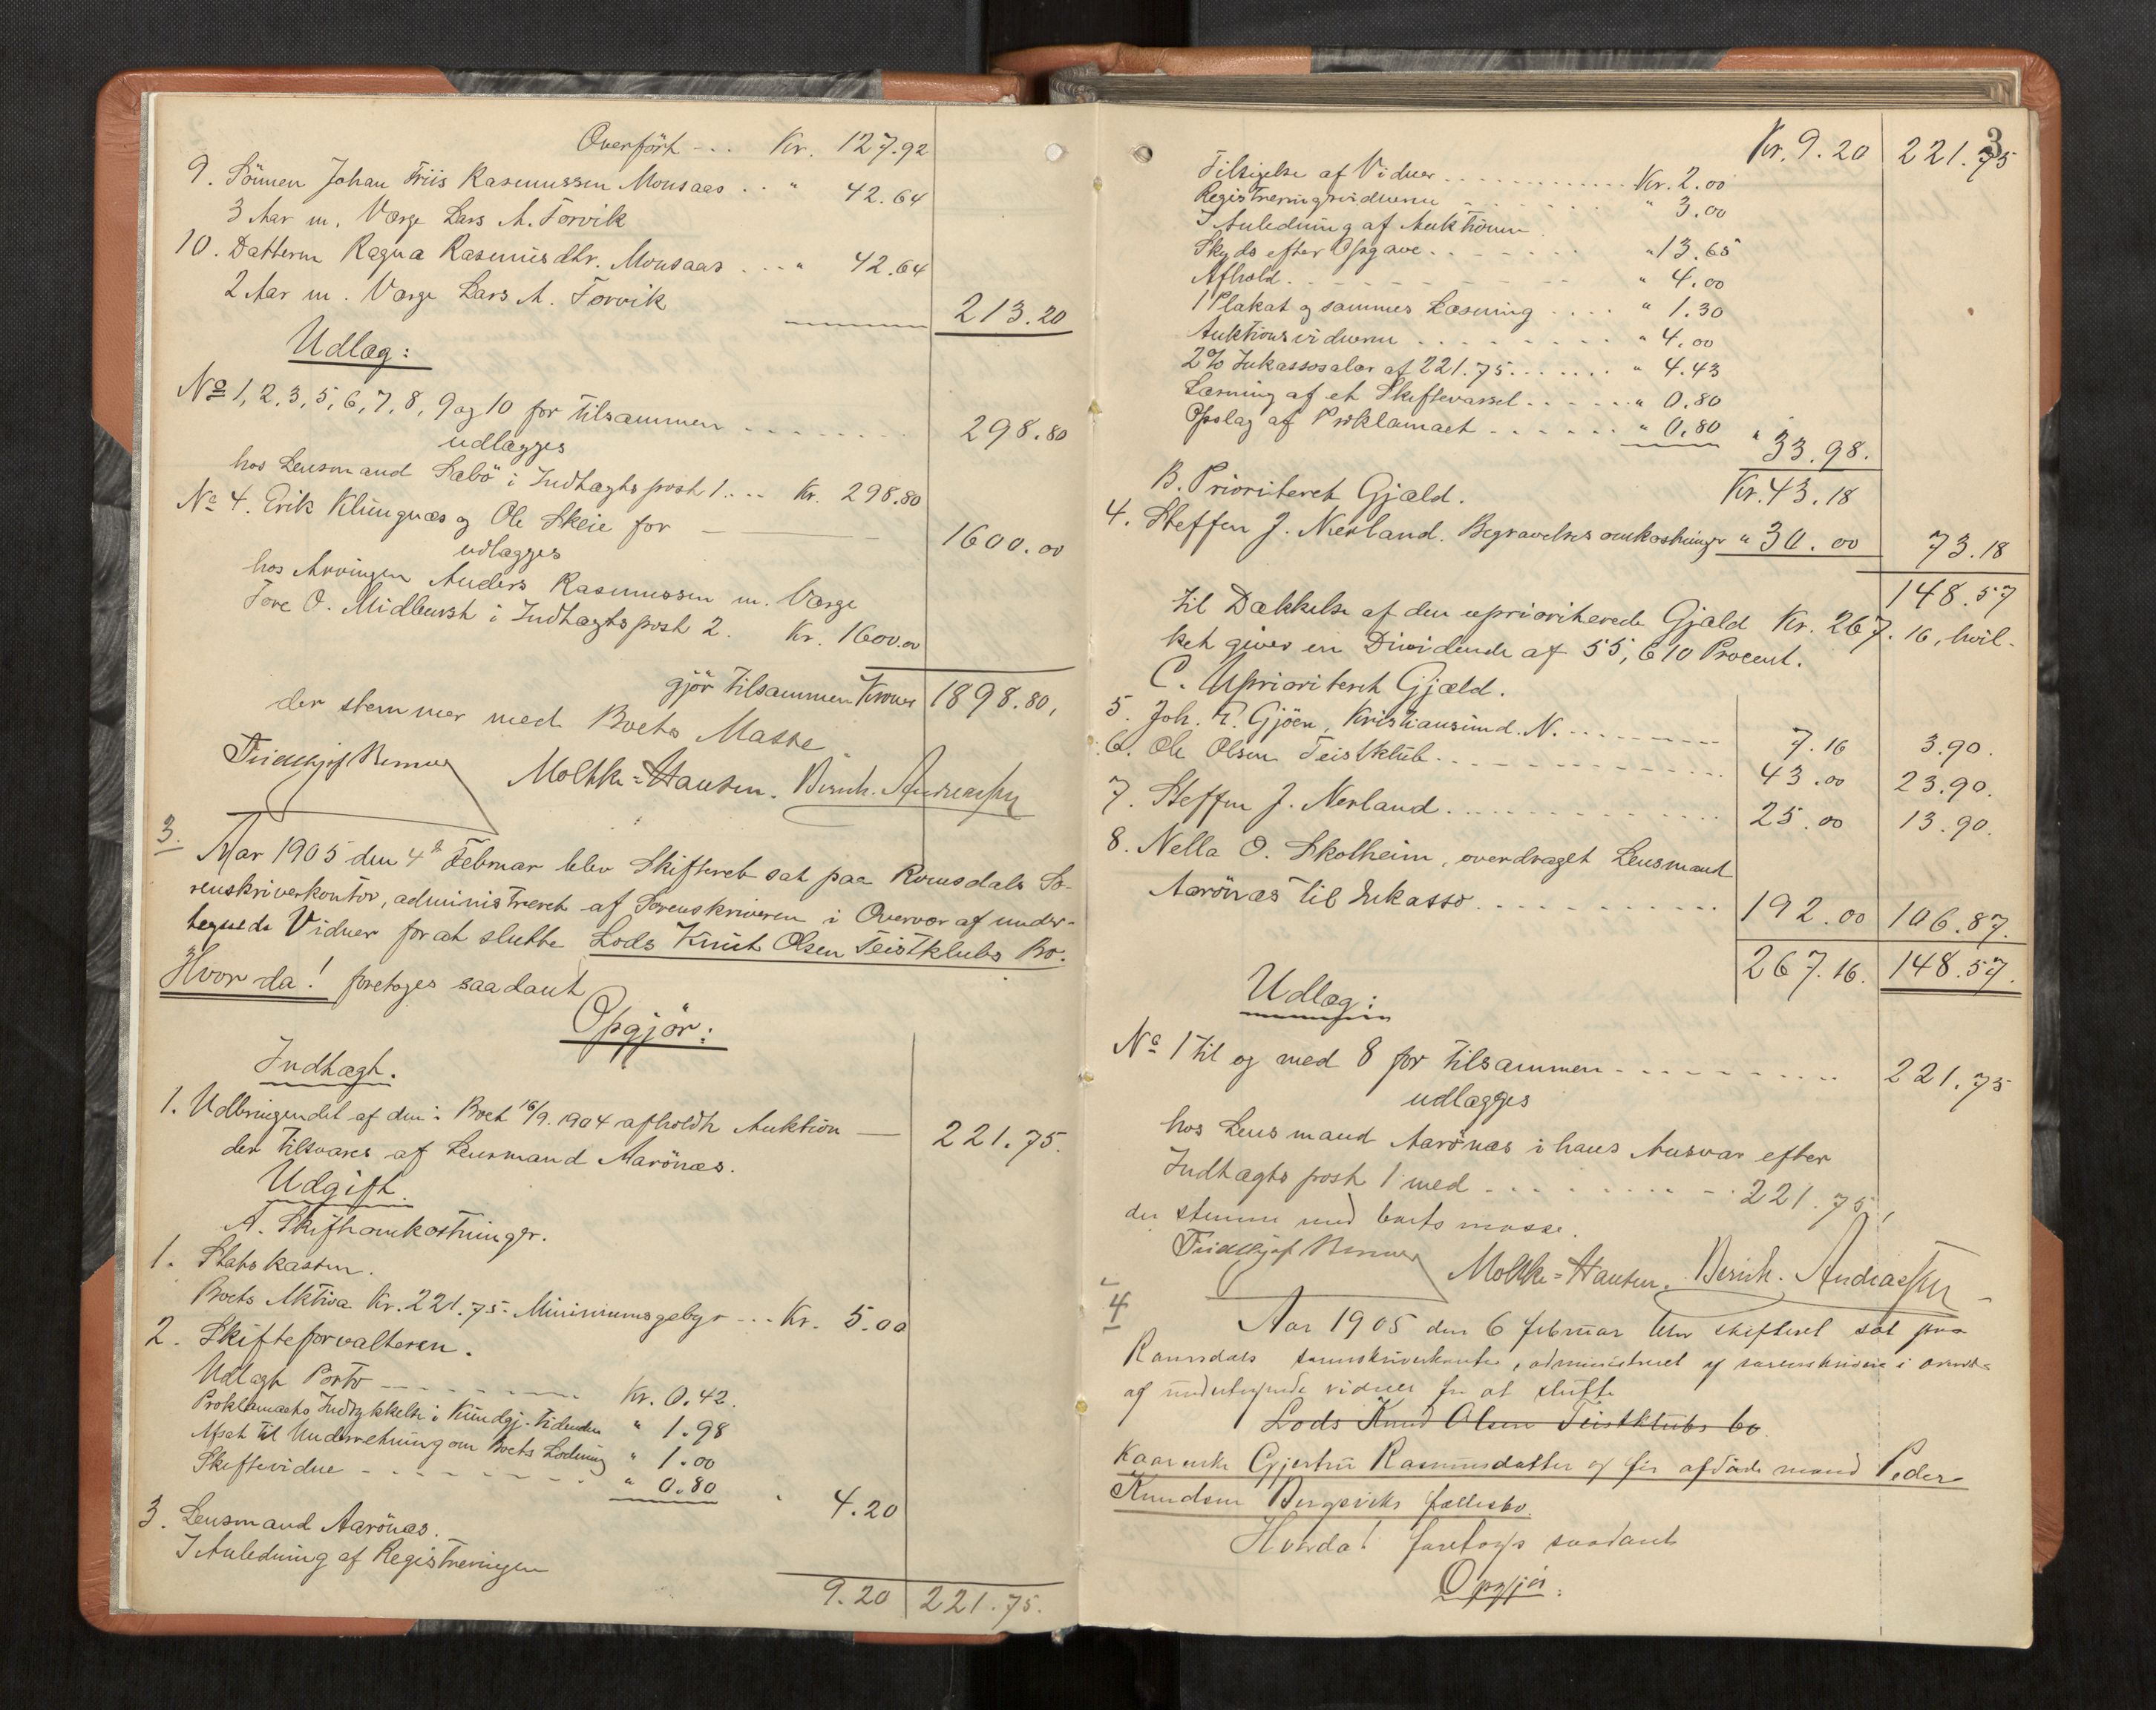 Overført - . . Kr. 127.92
9. Sönnen Johan Friis Rasmussen Monsaas . . " 42.64
3 Aar m. Værge Lars A. Torvik
10. Datteren Ragna Rasmusdtr. Monsaas . . . " 42.64
2 Aar m. Værge Lars A. Torvik
213.20
Udlæg:
No 1, 2, 3, 5, 6, 7, 8, 9 og 10 for tilsammen 298.80
udlægges
hos Lensmand Sæbö i Indtægts post 1 . . . Kr. 298.80
No 4. Erik Klungnæs og Ole Skeie for 1600.00
udlægges
hos Arvingen Anders Rasmussen m. Værge
Tore O. Midlbursh i Indtægtspost 2. Kr. 1600.00
gjör tilsammen Kroner 1898.80,
der stemmer med Boets Masse.
Moltke=Hansen. Bernh. Andreassen
3. Aar 1905 den 4de Februar blev Skifteret sat paa Romsdals So-
renskriverkontor, administreret af Sorenskriveren i Overvær af under-
tegnede Vidner for at slutte Lods Knut Olsen Teistklubs Bo.
Hvor da! foretoges saadant
Opgjör:
Indtægt.
1. Udbringendet af den i Boet 16/9. 1904 afholdte Auktion — 221.75.
der tilsvares af Lensmand Aarönæs.
Udgift.
A. Skifteomkostninger.
1. Statskassen.
Boets Aktiva Kr. 221.75. Minimumsgebyr - . . Kr. 5.00
2. Skifteforvalteren.
Udlagt Porto Kr. 0.42.
Proklamaets Indrykkelse i Kundgj. tidende " 1.98
Afsat til Underretning om Boets Slutning " 1.00
Skiftevidne " 0.80
" 4.20
3. Lensmand Aarönæs.
I Anledning af Registreringen
9.20 221.75.
3
Kr. 9.20 221.75
Tilsigelse af Vidner . . . Kr. 2.00
Registreringsvidnerne " 3.00
I Anledning af Auktionen
Skyds efter Opgave . . . " 13.65
Afhold . . . " 4.00
1 Plakat og sammes Læsning . . . " 1.30
Auktionsvidnerne . . . " 4.00
2% Inkassosalær af 221.75 . . . " 4.43
Læsning af et Skiftevarsel . . . " 0.80
Opslag af Proklamaet . . . " 0.80 " 33.98.
Kr. 43.18
B. Prioriteret Gjæld.
4. Steffen J. Nerland. Begravelses omkostninger " 30.00 73.18
148.57
til Dækkelse af den uprioriterede Gjæld Kr. 267.16, hvil-
ket giver en Dividende af 55,610 Procent.
C. Uprioriteret Gjæld.
5. Joh. E. Gjöen, Kristiansund. N. 7.16 3.90.
6. Ole Olsen Teistklub 43.00 23.90.
7. Steffen J. Nerland 25.00 13.90.
8. Nella O. Skotheim, overdraget Lensmand
Aarönæs til Inkasso 192.00 106.87.
267.16. 148.57.
Udlæg:
No 1 til og med 8 for tilsammen 221.75
udlægges
hos Lensmand Aarönæs i hans Ansvar efter
Indtægts post 1 med 221.75,
der stemme med boets masse.
Moltke=Hansen. Bernh. Andreassen
4 Aar 1905 den 6 februar blev skifteret sat paa
Romsdals sorenskriverkontor, administreret af sorenskriveren i overvær
af undertegnede vidner for at slutte
Lods Knud Olsen Teistklubs bo.
Kaarenke Gjertru Rasmusdatter og før afdøde mand Peder
Knudsen Bergsviks fællesbo.
Hvorda! foretoges saadant
Opgjör: